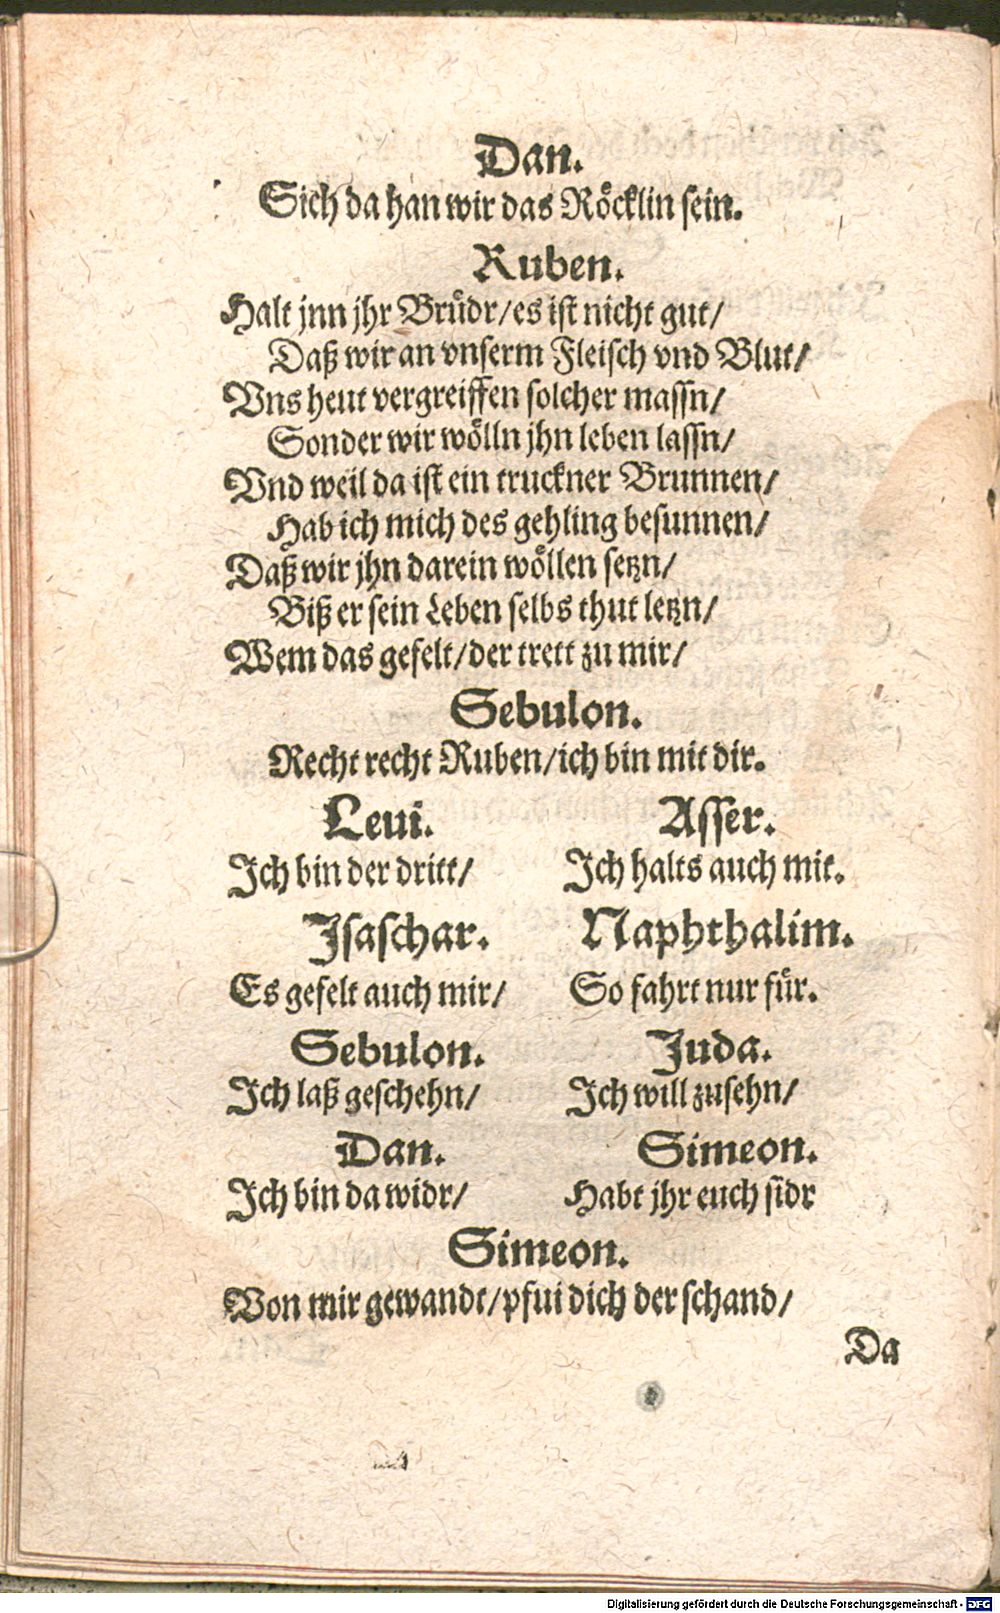 Dan.
Sich da han wir das Röcklin sein.
Ruben.
Halt jnn jhr Brüdr/es ist nicht gut/
Daß wir an vnserm Fleisch vnd Blut/
Vns heut vergreiffen solcher massn/
Sonder wir wölln jhn leben lassn/
Vnd weil da ist ein truckner Brunnen/
Hab ich mich des gehling besunnen/
Daß wir jhn darein wöllen setzn/
Biß er sein Leben selbs thut letzn/
Wem das gefelt/der trett zu mir/
Sebulon.
Recht recht Ruben/ich bin mit dir.
Leui.
Ich bin der dritt/
Asser.
Ich halts auch mit.
Isaschar.
Es gefelt auch mir/
Naphthalim.
So fahrt nur für.
Sebulon.
Ich laß geschehn/
Juda.
Ich will zusehn/
Dan.
Ich bin da widr/
Simeon.
Habt jhr euch sidr
Simeon.
Von mir gewandt/pfui dich der schand/
Da
Digitalisierung gefördert durch die Deutsche Forschungsgemeinschaft - DFG